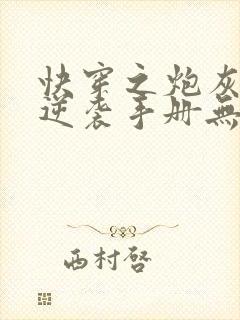 快穿之炮灰
逆袭手册無
西村啓